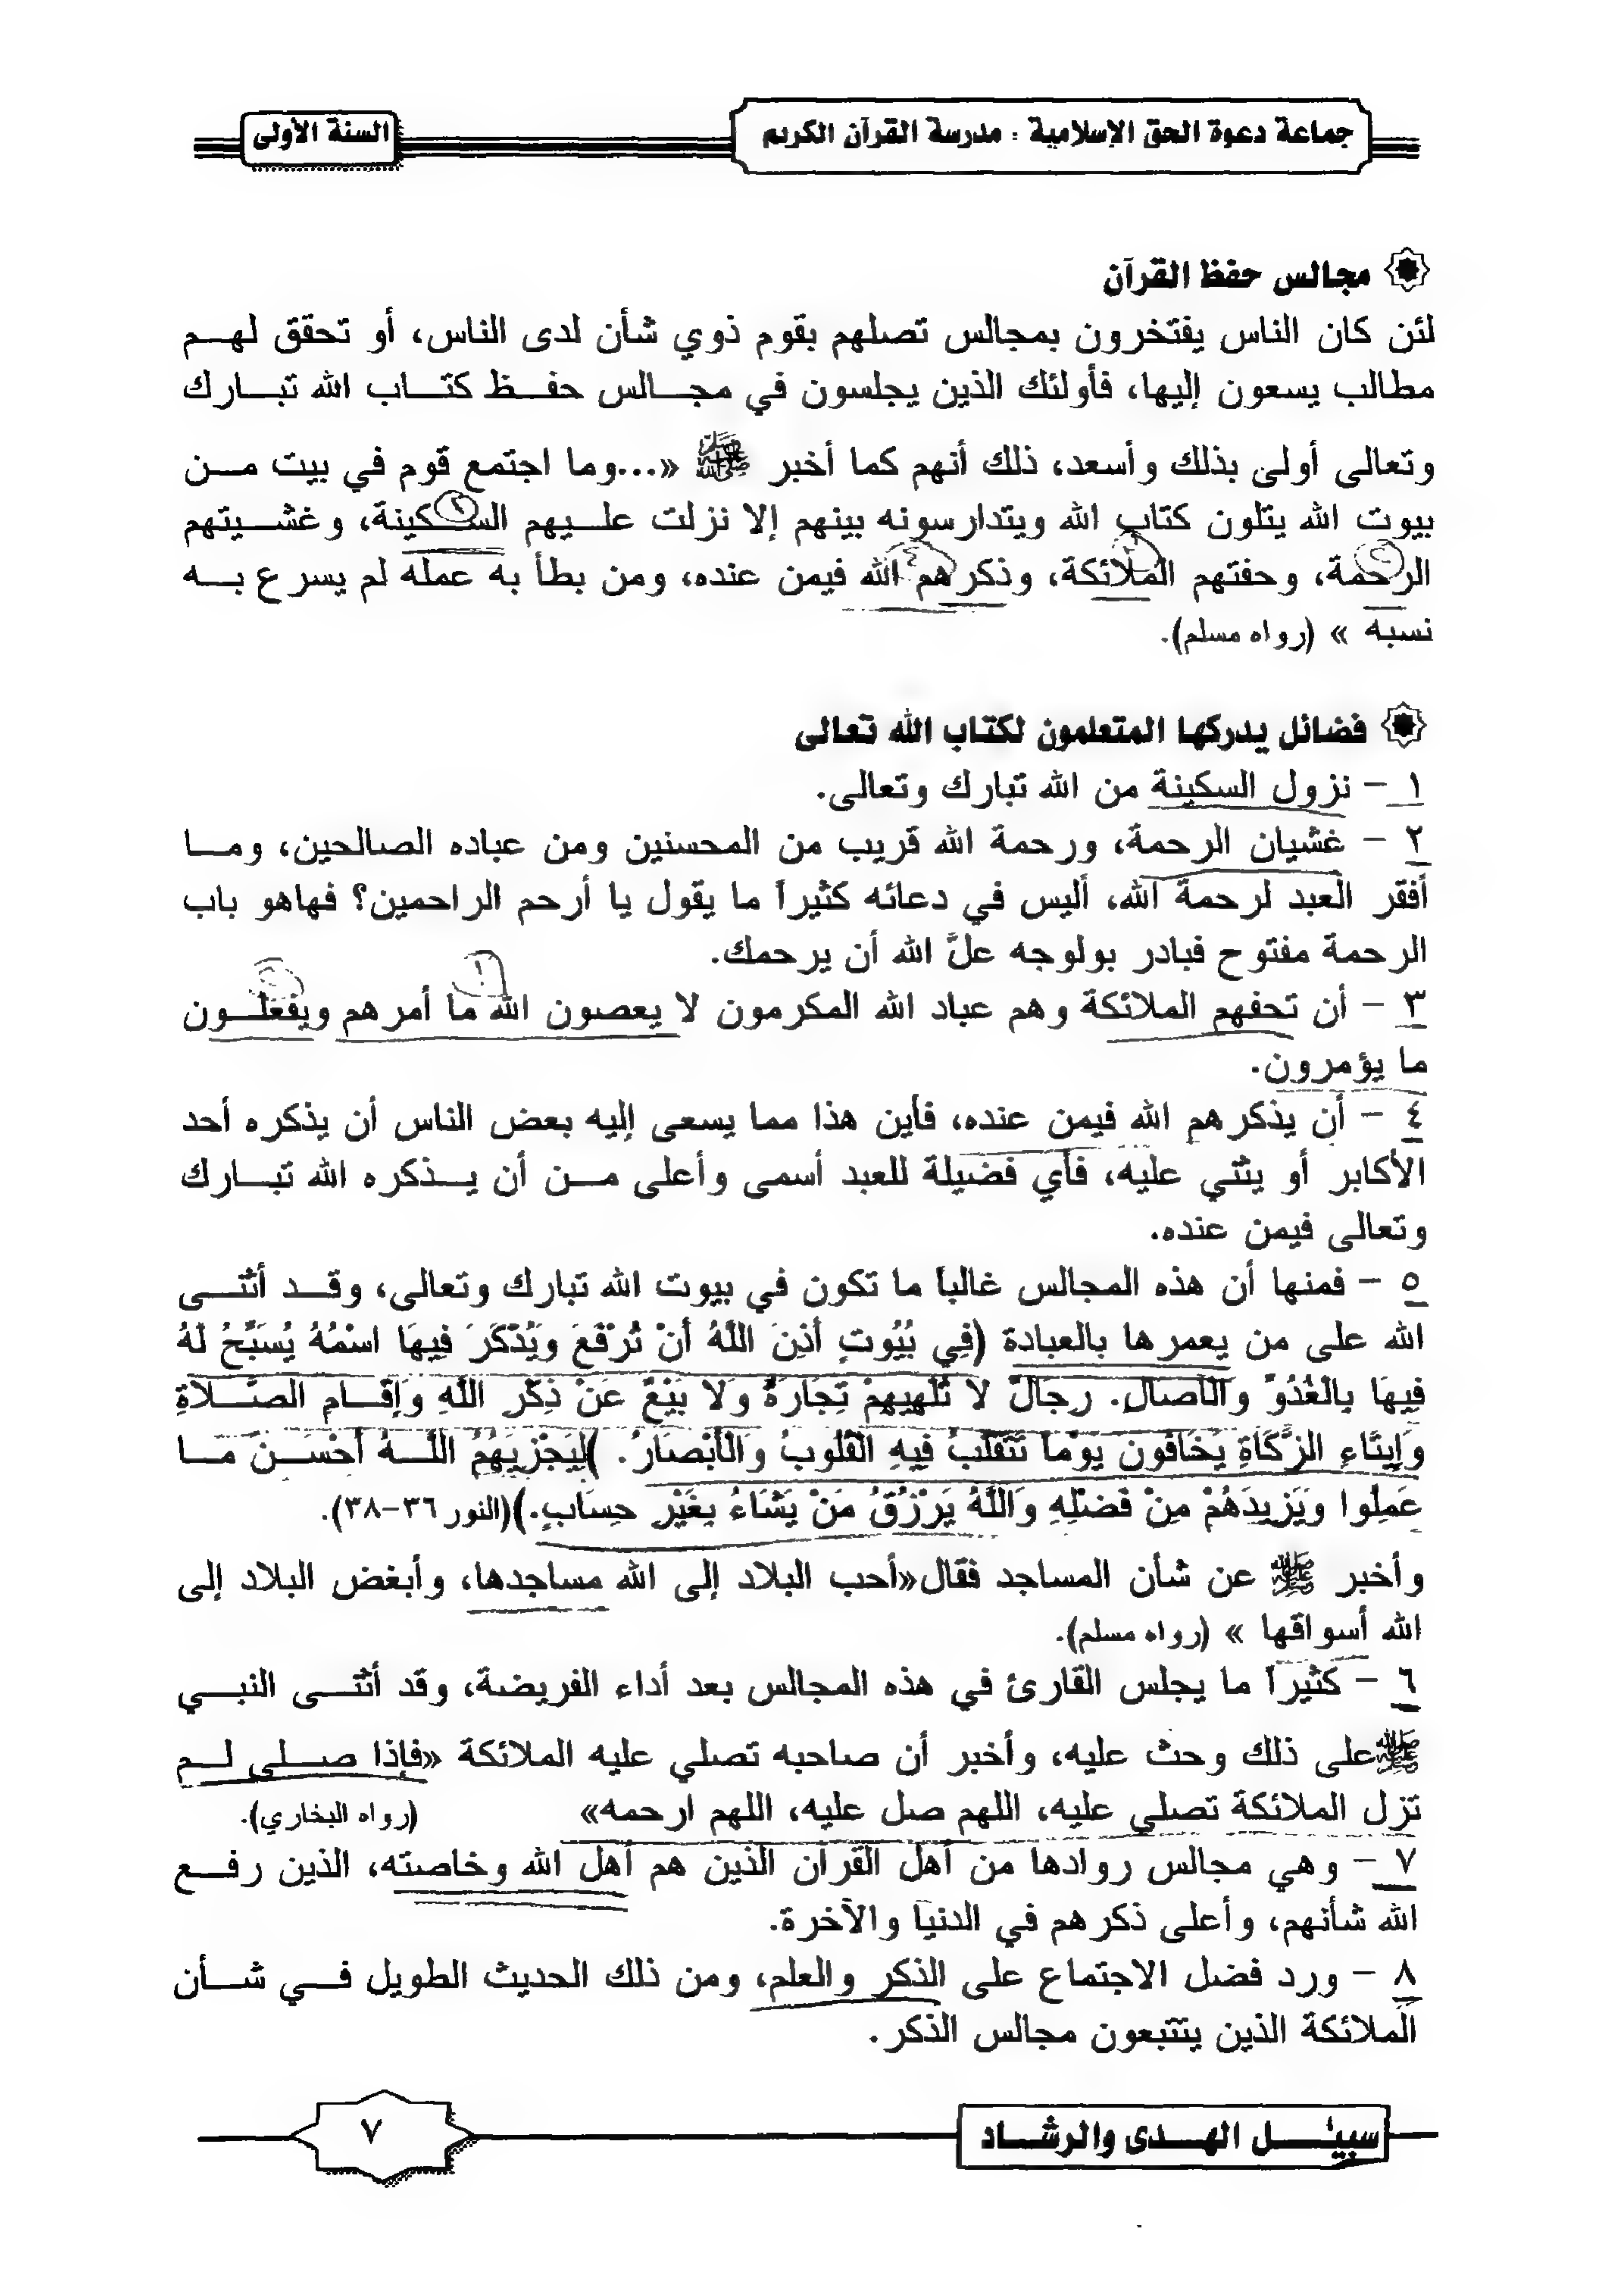 جماعة دعوة الحق الإسلامية : مدرسة القرآن الكريم
السنة الأولى
مجالس حفظ القرآن
لئن كان الناس يفتخرون بمجالس تصلهم بقوم ذوي شأن لدى الناس، أو تحقق لهم
مطالب يسعون إليها، فأولئك الذين يجلسون في مجالس حفظ كتاب الله تبارك
وتعالى أولى بذلك وأسعد، ذلك أنهم كما أخبر ﷺ «...وما اجتمع قوم في بيت من
بيوت الله يتلون كتاب الله ويتدارسونه بينهم إلا نزلت عليهم السكينة، وغشيتهم
الرحمة، وحفتهم الملائكة، وذكرهم الله فيمن عنده، ومن بطأ به عمله لم يسرع به
نسبه » (رواه مسلم).
فضائل يدركها المتعلمون لكتاب الله تعالى
١ – نزول السكينة من الله تبارك وتعالى.
٢ – غشيان الرحمة، ورحمة الله قريب من المحسنين ومن عباده الصالحين، وما
أفقر العبد لرحمة الله، أليس في دعائه كثيراً ما يقول يا أرحم الراحمين؟ فهاهو باب
الرحمة مفتوح فبادر بولوجه علَّ الله أن يرحمك.
٣ – أن تحفهم الملائكة وهم عباد الله المكرمون لا يعصون الله ما أمرهم ويفعلون
ما يؤمرون.
٤ – أن يذكرهم الله فيمن عنده، فأين هذا مما يسعى إليه بعض الناس أن يذكره أحد
الأكابر أو يثني عليه، فأي فضيلة للعبد أسمى وأعلى من أن يذكره الله تبارك
وتعالى فيمن عنده.
٥ – فمنها أن هذه المجالس غالباً ما تكون في بيوت الله تبارك وتعالى، وقد أثنى
الله على من يعمرها بالعبادة (فِي بُيُوتٍ أَذِنَ اللَّهُ أَنْ تُرْفَعَ وَيُذْكَرَ فِيهَا اسْمُهُ يُسَبِّحُ لَهُ
فِيهَا بِالْغُدُوِّ وَالْآصَالِ. رِجَالٌ لا تُلْهِيهِمْ تِجَارَةٌ وَلا بَيْعٌ عَنْ ذِكْرِ اللَّهِ وَإِقَامِ الصَّلاةِ
وَإِيتَاءِ الزَّكَاةِ يَخَافُونَ يَوْماً تَتَقَلَّبُ فِيهِ الْقُلُوبُ وَالْأَبْصَارُ. )لِيَجْزِيَهُمُ اللَّهُ أَحْسَنَ مَا
عَمِلُوا وَيَزِيدَهُمْ مِنْ فَضْلِهِ وَاللَّهُ يَرْزُقُ مَنْ يَشَاءُ بِغَيْرِ حِسَابٍ.)(النور ٣٦-٣٨).
وأخبر ﷺ عن شأن المساجد فقال«أحب البلاد إلى الله مساجدها، وأبغض البلاد إلى
الله أسواقها » (رواه مسلم).
٦ – كثيراً ما يجلس القارئ في هذه المجالس بعد أداء الفريضة، وقد أثنى النبي
ﷺ على ذلك وحث عليه، وأخبر أن صاحبه تصلي عليه الملائكة «فإذا صلى لم
تزل الملائكة تصلي عليه، اللهم صل عليه، اللهم ارحمه» (رواه البخاري).
٧ – وهي مجالس روادها من أهل القرآن الذين هم أهل الله وخاصته، الذين رفع
الله شأنهم، وأعلى ذكرهم في الدنيا والآخرة.
٨ – ورد فضل الاجتماع على الذكر والعلم، ومن ذلك الحديث الطويل في شأن
الملائكة الذين يتتبعون مجالس الذكر.
سبيل الهدى والرشاد
٧